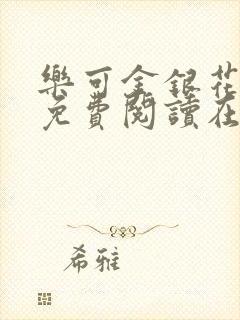 樂可金銀花
免費閱讀在
希雅